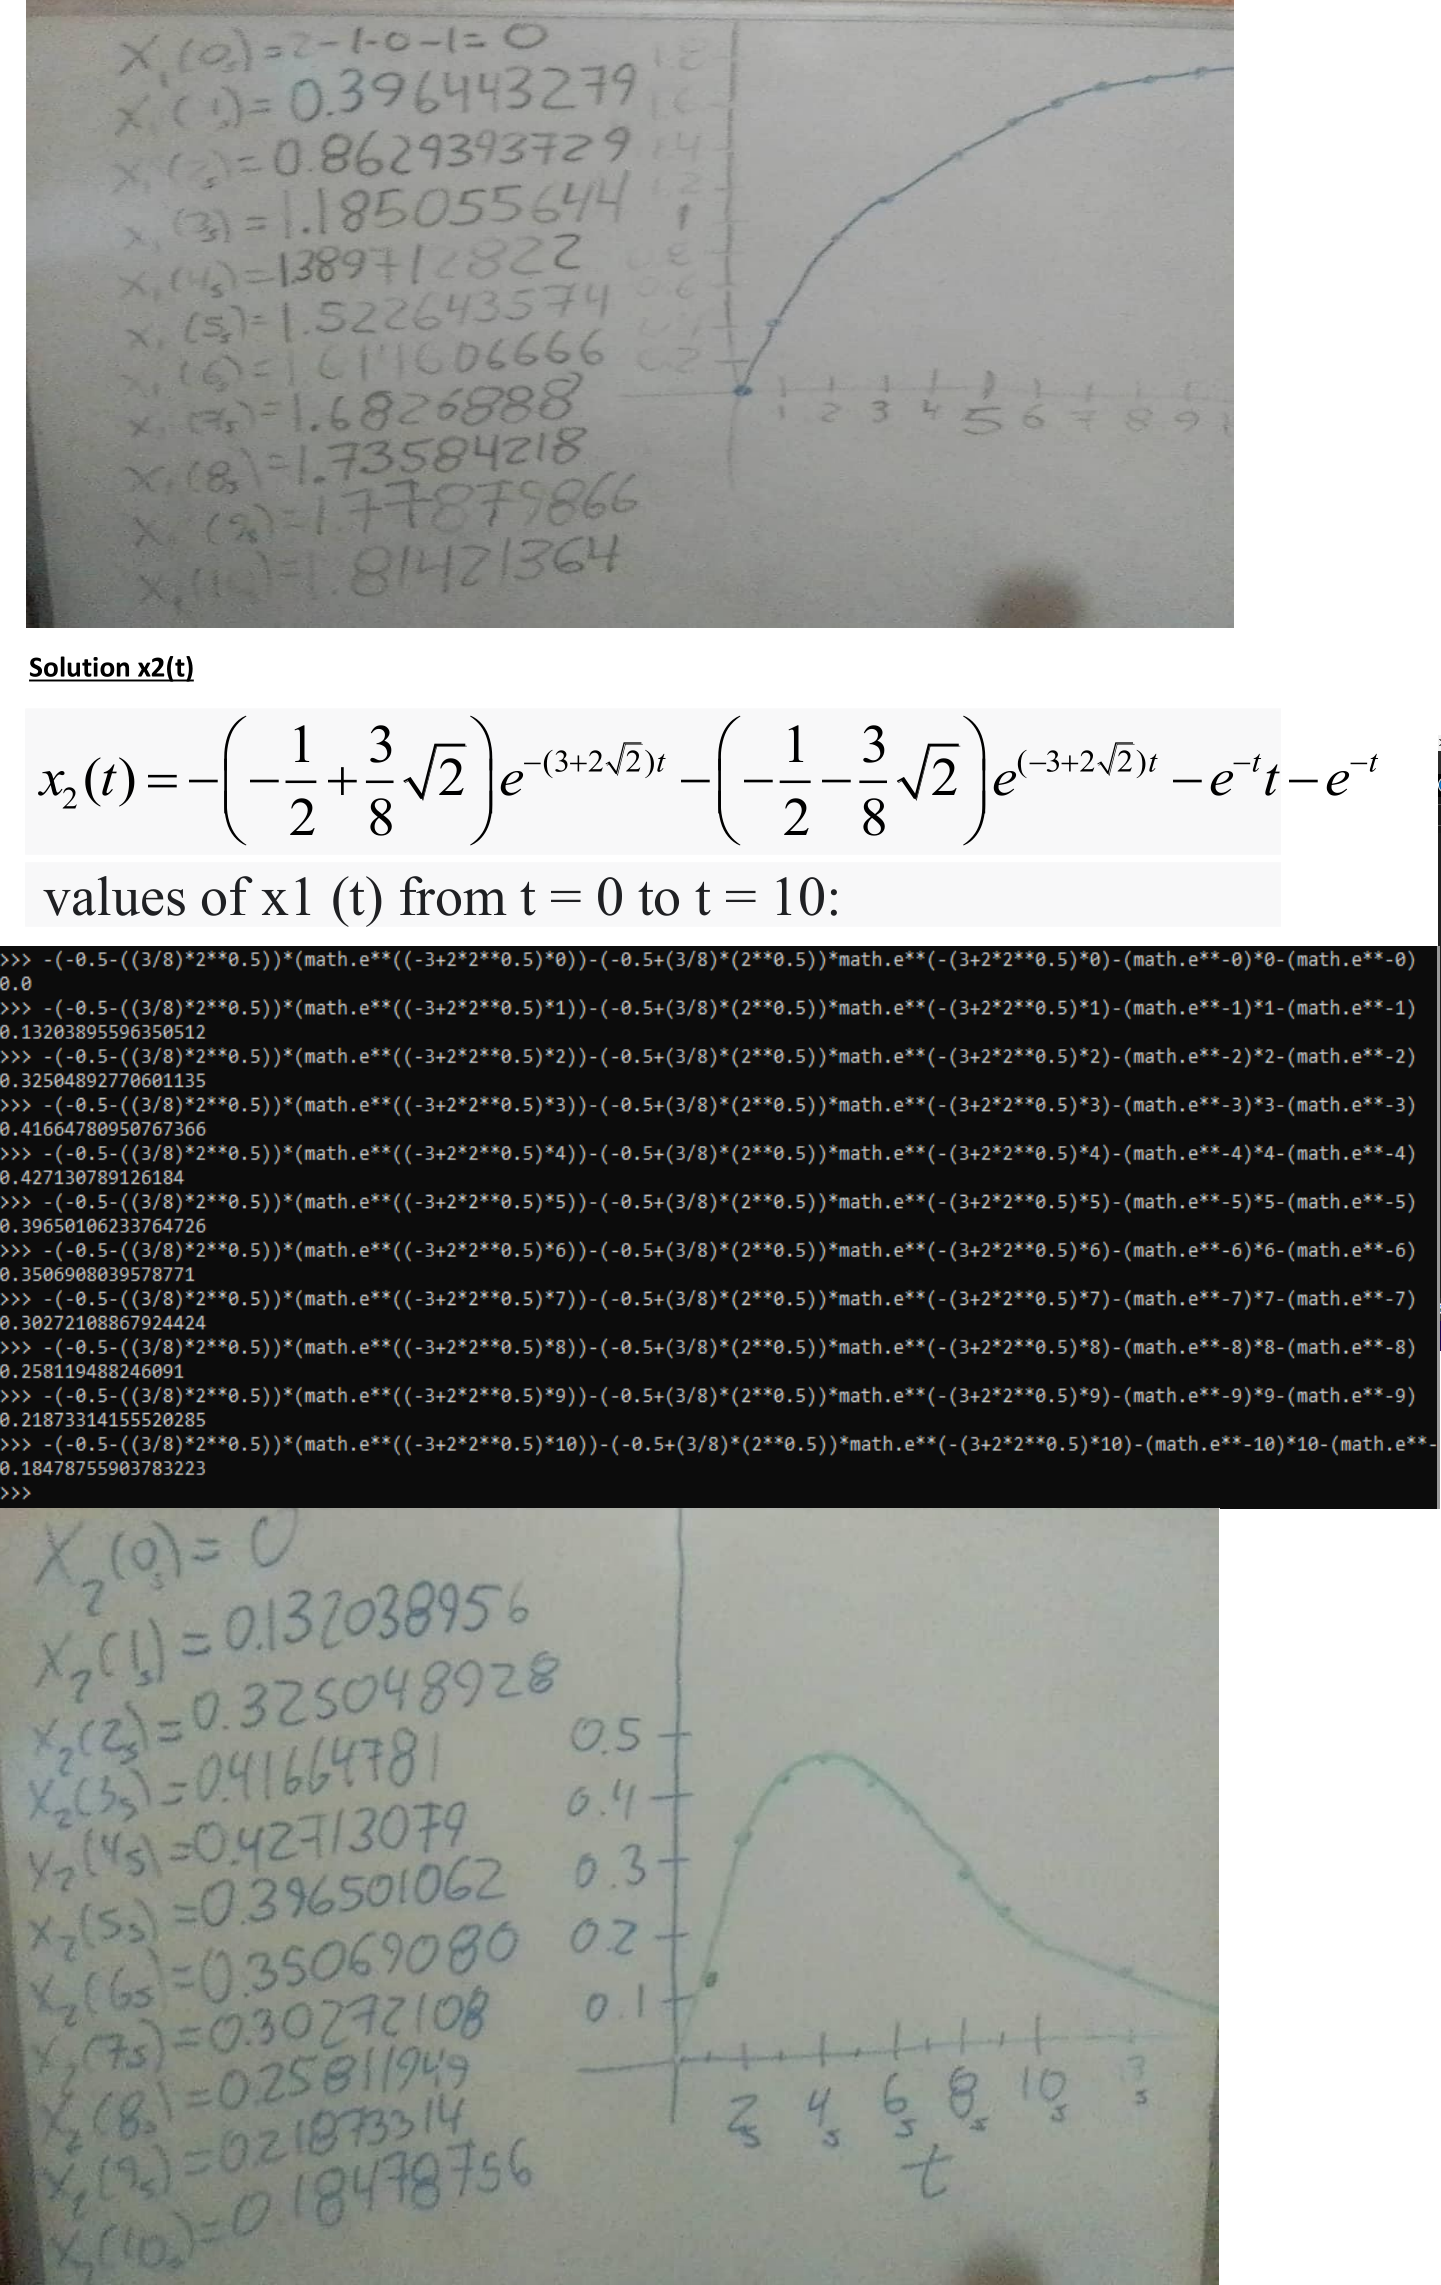 X₁(0s)=2-1-0-1=0
X₁(1s)=0.396443279
X₁(2s)=0.8629393729
X₁(3s)=1.185055644
X₁(4s)=1.389712822
X₁(5s)=1.522643574
X₁(6s)=1.611606666
X₁(7s)=1.6826888
X₁(8s)=1.73584218
X₁(9s)=1.77879866
X₁(10s)=1.81421364
1.8
1.6
1.4
1.2
1
0.8
0.6
0.4
0.2
1 2 3 4 5 6 7 8 9 1
Solution x2(t)
x₂(t) = −(−1/2 + 3/8 √2)e^{−(3+2√2)t} − (−1/2 − 3/8 √2)e^{(−3+2√2)t} − e^{−t}t − e^{−t}
values of x1 (t) from t = 0 to t = 10:
>>> -(-0.5-((3/8)*2**0.5))*(math.e**((-3+2*2**0.5)*0))-(-0.5+(3/8)*(2**0.5))*math.e**(-(3+2*2**0.5)*0)-(math.e**-0)*0-(math.e**-0)
0.0
>>> -(-0.5-((3/8)*2**0.5))*(math.e**((-3+2*2**0.5)*1))-(-0.5+(3/8)*(2**0.5))*math.e**(-(3+2*2**0.5)*1)-(math.e**-1)*1-(math.e**-1)
0.13203895596350512
>>> -(-0.5-((3/8)*2**0.5))*(math.e**((-3+2*2**0.5)*2))-(-0.5+(3/8)*(2**0.5))*math.e**(-(3+2*2**0.5)*2)-(math.e**-2)*2-(math.e**-2)
0.32504892770601135
>>> -(-0.5-((3/8)*2**0.5))*(math.e**((-3+2*2**0.5)*3))-(-0.5+(3/8)*(2**0.5))*math.e**(-(3+2*2**0.5)*3)-(math.e**-3)*3-(math.e**-3)
0.41664780950767366
>>> -(-0.5-((3/8)*2**0.5))*(math.e**((-3+2*2**0.5)*4))-(-0.5+(3/8)*(2**0.5))*math.e**(-(3+2*2**0.5)*4)-(math.e**-4)*4-(math.e**-4)
0.427130789126184
>>> -(-0.5-((3/8)*2**0.5))*(math.e**((-3+2*2**0.5)*5))-(-0.5+(3/8)*(2**0.5))*math.e**(-(3+2*2**0.5)*5)-(math.e**-5)*5-(math.e**-5)
0.39650106233764726
>>> -(-0.5-((3/8)*2**0.5))*(math.e**((-3+2*2**0.5)*6))-(-0.5+(3/8)*(2**0.5))*math.e**(-(3+2*2**0.5)*6)-(math.e**-6)*6-(math.e**-6)
0.3506908039578771
>>> -(-0.5-((3/8)*2**0.5))*(math.e**((-3+2*2**0.5)*7))-(-0.5+(3/8)*(2**0.5))*math.e**(-(3+2*2**0.5)*7)-(math.e**-7)*7-(math.e**-7)
0.30272108867924424
>>> -(-0.5-((3/8)*2**0.5))*(math.e**((-3+2*2**0.5)*8))-(-0.5+(3/8)*(2**0.5))*math.e**(-(3+2*2**0.5)*8)-(math.e**-8)*8-(math.e**-8)
0.258119488246091
>>> -(-0.5-((3/8)*2**0.5))*(math.e**((-3+2*2**0.5)*9))-(-0.5+(3/8)*(2**0.5))*math.e**(-(3+2*2**0.5)*9)-(math.e**-9)*9-(math.e**-9)
0.21873314155520285
>>> -(-0.5-((3/8)*2**0.5))*(math.e**((-3+2*2**0.5)*10))-(-0.5+(3/8)*(2**0.5))*math.e**(-(3+2*2**0.5)*10)-(math.e**-10)*10-(math.e**-
0.18478755903783223
>>>
X₂(0s)=0
X₂(1s)=0.132038956
X₂(2s)=0.325048928
X₂(3s)=0.41664781
X₂(4s)=0.42713079
X₂(5s)=0.396501062
X₂(6s)=0.35069080
X₂(7s)=0.30272108
X₂(8s)=0.25811949
X₂(9s)=0.21873314
X₂(10s)=0.18478756
0.5
0.4
0.3
0.2
0.1
2s 4s 6s 8s 10s
t